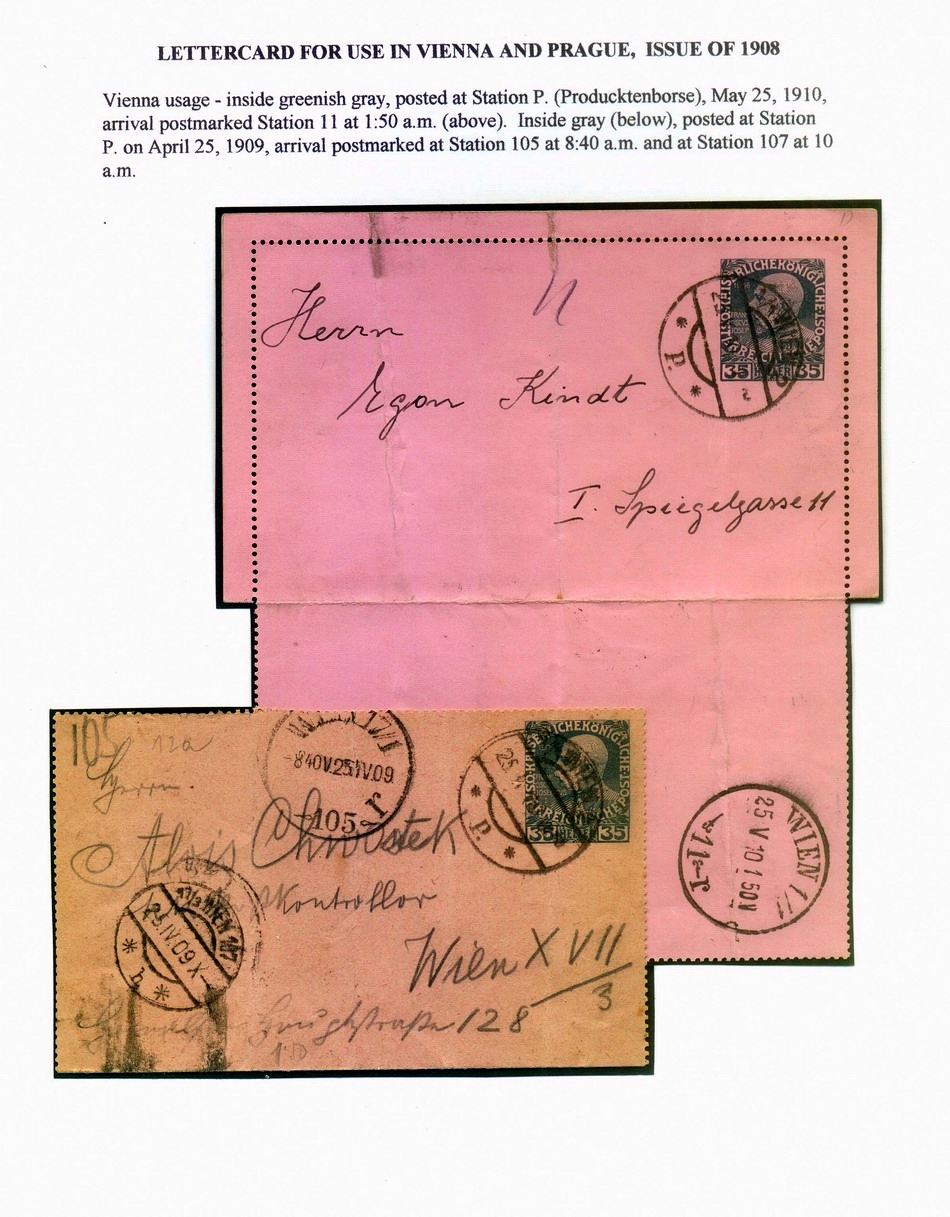 LETTERCARD FOR USE IN VIENNA AND PRAGUE, ISSUE OF 1908
Vienna usage - inside greenish gray, posted at Station P. (Producktenborse), May 25, 1910,
arrival postmarked Station 11 at 1:50 a.m. (above). Inside gray (below), posted at Station
P. on April 25, 1909, arrival postmarked at Station 105 at 8:40 a.m. and at Station 107 at 10
a.m.
11
KAISERLICHEKÖNIGLICHE
35 HELLER 35
WIEN
P.
2
Herrn
Egon Kindt
I. Spiegelgasse 11
WIEN 1/1
25 V 10 1 50V
*11-r
105
12a
WIEN 17/1
-840V.25.IV.09
105
r
KÖNIGLICHE
35 HELLER 35
25
P.
Herrn
Alois Chwostek
Kontrollor
17/3 WIEN 107
25.IV.09.X
b
Wien XVII
3
Hauptstraße 128